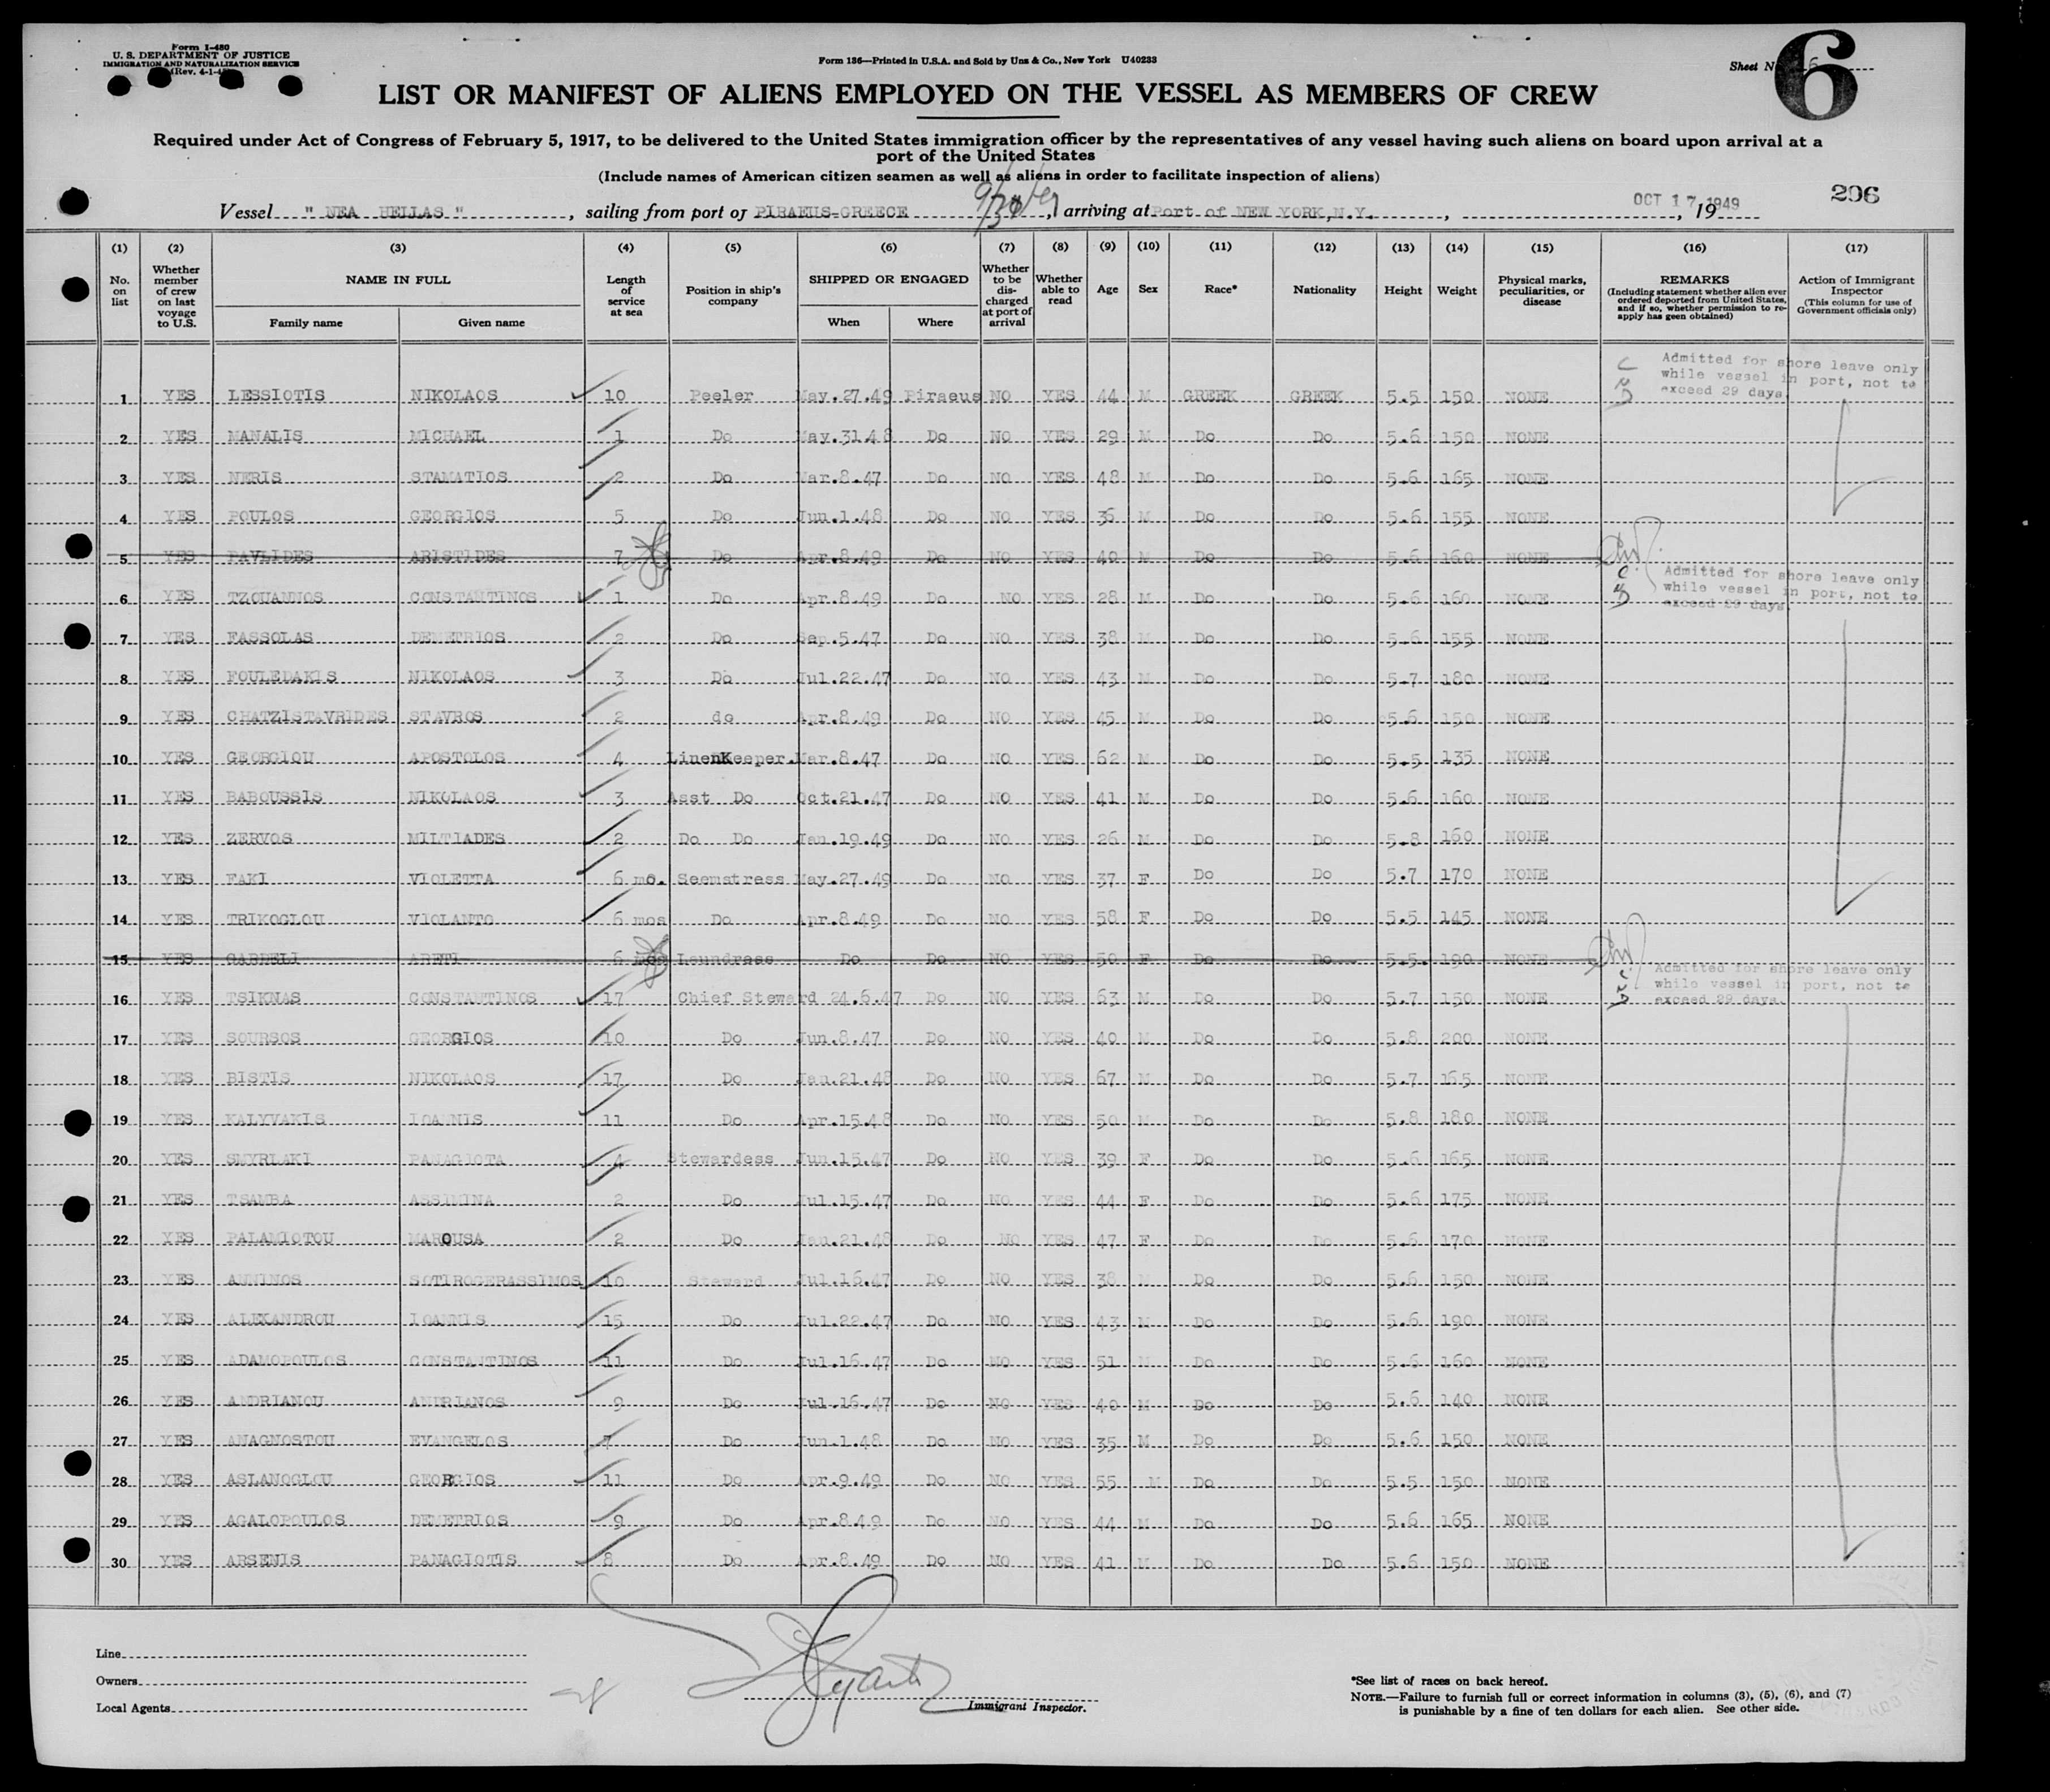 Form I-480
U. S. DEPARTMENT OF JUSTICE
IMMIGRATION AND NATURALIZATION SERVICE
(Rev. 4-1-4
Form 136—Printed in U.S.A. and Sold by Unz & Co., New York U40233
Sheet No. 6
6
LIST OR MANIFEST OF ALIENS EMPLOYED ON THE VESSEL AS MEMBERS OF CREW
Required under Act of Congress of February 5, 1917, to be delivered to the United States immigration officer by the representatives of any vessel having such aliens on board upon arrival at a
port of the United States
(Include names of American citizen seamen as well as aliens in order to facilitate inspection of aliens)
296
Vessel " NEA HELLAS ", sailing from port of PIRAEUS-GREECE, arriving at Port of NEW YORK, N.Y., OCT 17 1949, 19
(1) (2) (3) (4) (5) (6) (7) (8) (9) (10) (11) (12) (13) (14) (15) (16) (17)
No. on list
Whether member of crew on last voyage to U.S.
NAME IN FULL
Family name Given name
Length of service at sea
Position in ship's company
SHIPPED OR ENGAGED
When Where
Whether to be discharged at port of arrival
Whether able to read
Age Sex Race* Nationality Height Weight
Physical marks, peculiarities, or disease
REMARKS
(Including statement whether alien ever ordered deported from United States, and if so, whether permission to re-apply has geen obtained)
Action of Immigrant Inspector
(This column for use of Government officials only)
Admitted for shore leave only
while vessel in port, not to
exceed 29 days.
1 YES LESSIOTIS NIKOLAOS 10 Peeler May.27.49 Piraeus NO YES 44 M GREEK GREEK 5.5 150 NONE
2 YES MANALIS MICHAEL 1 Do May.31.48 Do NO YES 29 M Do Do 5.6 150 NONE
3 YES NERIS STAMATIOS 2 Do Mar.8.47 Do NO YES 48 M Do Do 5.6 165 NONE
4 YES POULOS GEORGIOS 5 Do Jun.1.48 Do NO YES 36 M Do Do 5.6 155 NONE
5 YES PAVLIDES ARISTIDES 7 Do Apr.8.49 Do NO YES 40 M Do Do 5.6 160 NONE
Admitted for shore leave only
while vessel in port, not to
exceed 29 days.
6 YES TZOUANNOS CONSTANTINOS 1 Do Apr.8.49 Do NO YES 28 M Do Do 5.6 160 NONE
7 YES FASSOLAS DEMETRIOS 2 Do Sep.5.47 Do NO YES 38 M Do Do 5.6 155 NONE
8 YES FOULEDAKIS NIKOLAOS 3 Do Jul.22.47 Do NO YES 43 M Do Do 5.7 180 NONE
9 YES CHATZISTAVRIDES STAVROS 2 do Apr.8.49 Do NO YES 45 M Do Do 5.6 150 NONE
10 YES GEORGIOU APOSTOLOS 4 LinenKeeper. Mar.8.47 Do NO YES 62 M Do Do 5.5 135 NONE
11 YES BABOUSSIS NIKOLAOS 3 Asst Do Oct.21.47 Do NO YES 41 M Do Do 5.6 160 NONE
12 YES ZERVOS MILTIADES 2 Do Do Jan.19.49 Do NO YES 26 M Do Do 5.8 160 NONE
13 YES FAKI VIOLETTA 6 mo. Seemstress May.27.49 Do NO YES 37 F Do Do 5.7 170 NONE
14 YES TRIKOGLOU VIOLANTO 6 mos Do Apr.8.49 Do NO YES 58 F Do Do 5.5 145 NONE
15 YES GARDELI ARETI 6 mos Laundress Do Do NO YES 50 F Do Do 5.5. 190 NONE
Admitted for shore leave only
while vessel in port, not to
exceed 29 days.
16 YES TSIKNAS CONSTANTINOS 17 Chief Steward 24.6.47 Do NO YES 63 M Do Do 5.7 150 NONE
17 YES SOURSOS GEORGIOS 10 Do Jun.8.47 Do NO YES 40 M Do Do 5.8 200 NONE
18 YES BISTIS NIKOLAOS 17 Do Jan.21.48 Do NO YES 67 M Do Do 5.7 165 NONE
19 YES KALYVAKIS IOANNIS 11 Do Apr.15.48 Do NO YES 50 M Do Do 5.8 180 NONE
20 YES SMYRLAKI PANAGIOTA 4 Stewardess Jun.15.47 Do NO YES 39 F Do Do 5.6 165 NONE
21 YES TSAMBA ASSIMINA 2 Do Jul.15.47 Do NO YES 44 F Do Do 5.6 175 NONE
22 YES PALAMIOTOU MAROUSA 2 Do Jan.21.48 Do NO YES 47 F Do Do 5.6 170 NONE
23 YES ANNINOS SOTIROGERASSIMOS 10 Steward Jul.16.47 Do NO YES 38 M Do Do 5.6 150 NONE
24 YES ALEXANDROU IOANNIS 15 Do Jul.22.47 Do NO YES 43 M Do Do 5.6 190 NONE
25 YES ADAMOPOULOS CONSTANTINOS 11 Do Jul.16.47 Do NO YES 51 M Do Do 5.6 160 NONE
26 YES ANDRIANOU ANDRIANOS 9 Do Jul.16.47 Do NO YES 40 M Do Do 5.6 140 NONE
27 YES ANAGNOSTOU EVANGELOS 7 Do Jun.1.48 Do NO YES 35 M Do Do 5.6 150 NONE
28 YES ASLANOGLOU GEORGIOS 11 Do Apr.9.49 Do NO YES 55 M Do Do 5.5 150 NONE
29 YES AGALOPOULOS DEMETRIOS 9 Do Apr.8.49 Do NO YES 44 M Do Do 5.6 165 NONE
30 YES ARSENIS PANAGIOTIS 8 Do Apr.8.49 Do NO YES 41 M Do Do 5.6 150 NONE
Line
Owners
Local Agents
Immigrant Inspector.
*See list of races on back hereof.
NOTE.—Failure to furnish full or correct information in columns (3), (5), (6), and (7)
is punishable by a fine of ten dollars for each alien. See other side.